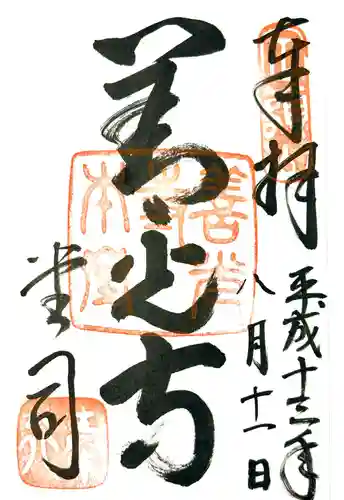 奉拝
平成十三年
八月十一日
善光寺
堂司
善光寺本堂